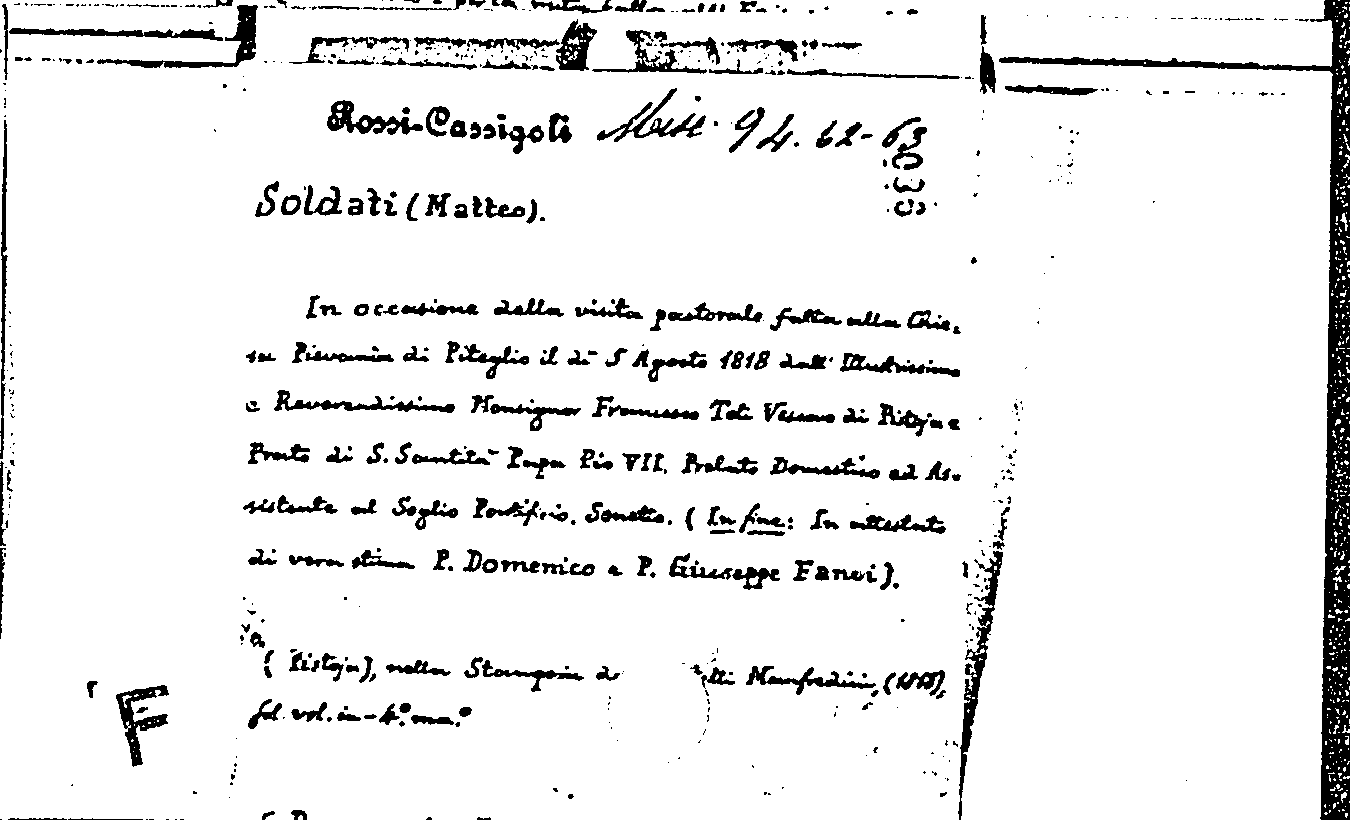 Rossi-Cassigoli Misc. 94. 62-63
Soldati (Matteo).
In occasione della visita pastorale fatta alla Chie-
sa Pievania di Piteglio il dì 5 Agosto 1818 dall' Illustrissimo
e Reverendissimo Monsignor Francesco Toli Vescovo di Pistoja e
Prato di S. Santità Papa Pio VII. Prelato Domestico ed As-
sistente al Soglio Pontificio. Sonetto. (In fine: In attestato
di vera stima P. Domenico e P. Giuseppe Fanvi).
(Pistoja), nella Stamperia Manfredini, (1818),
fol. vol. in-4.º ma.º
F